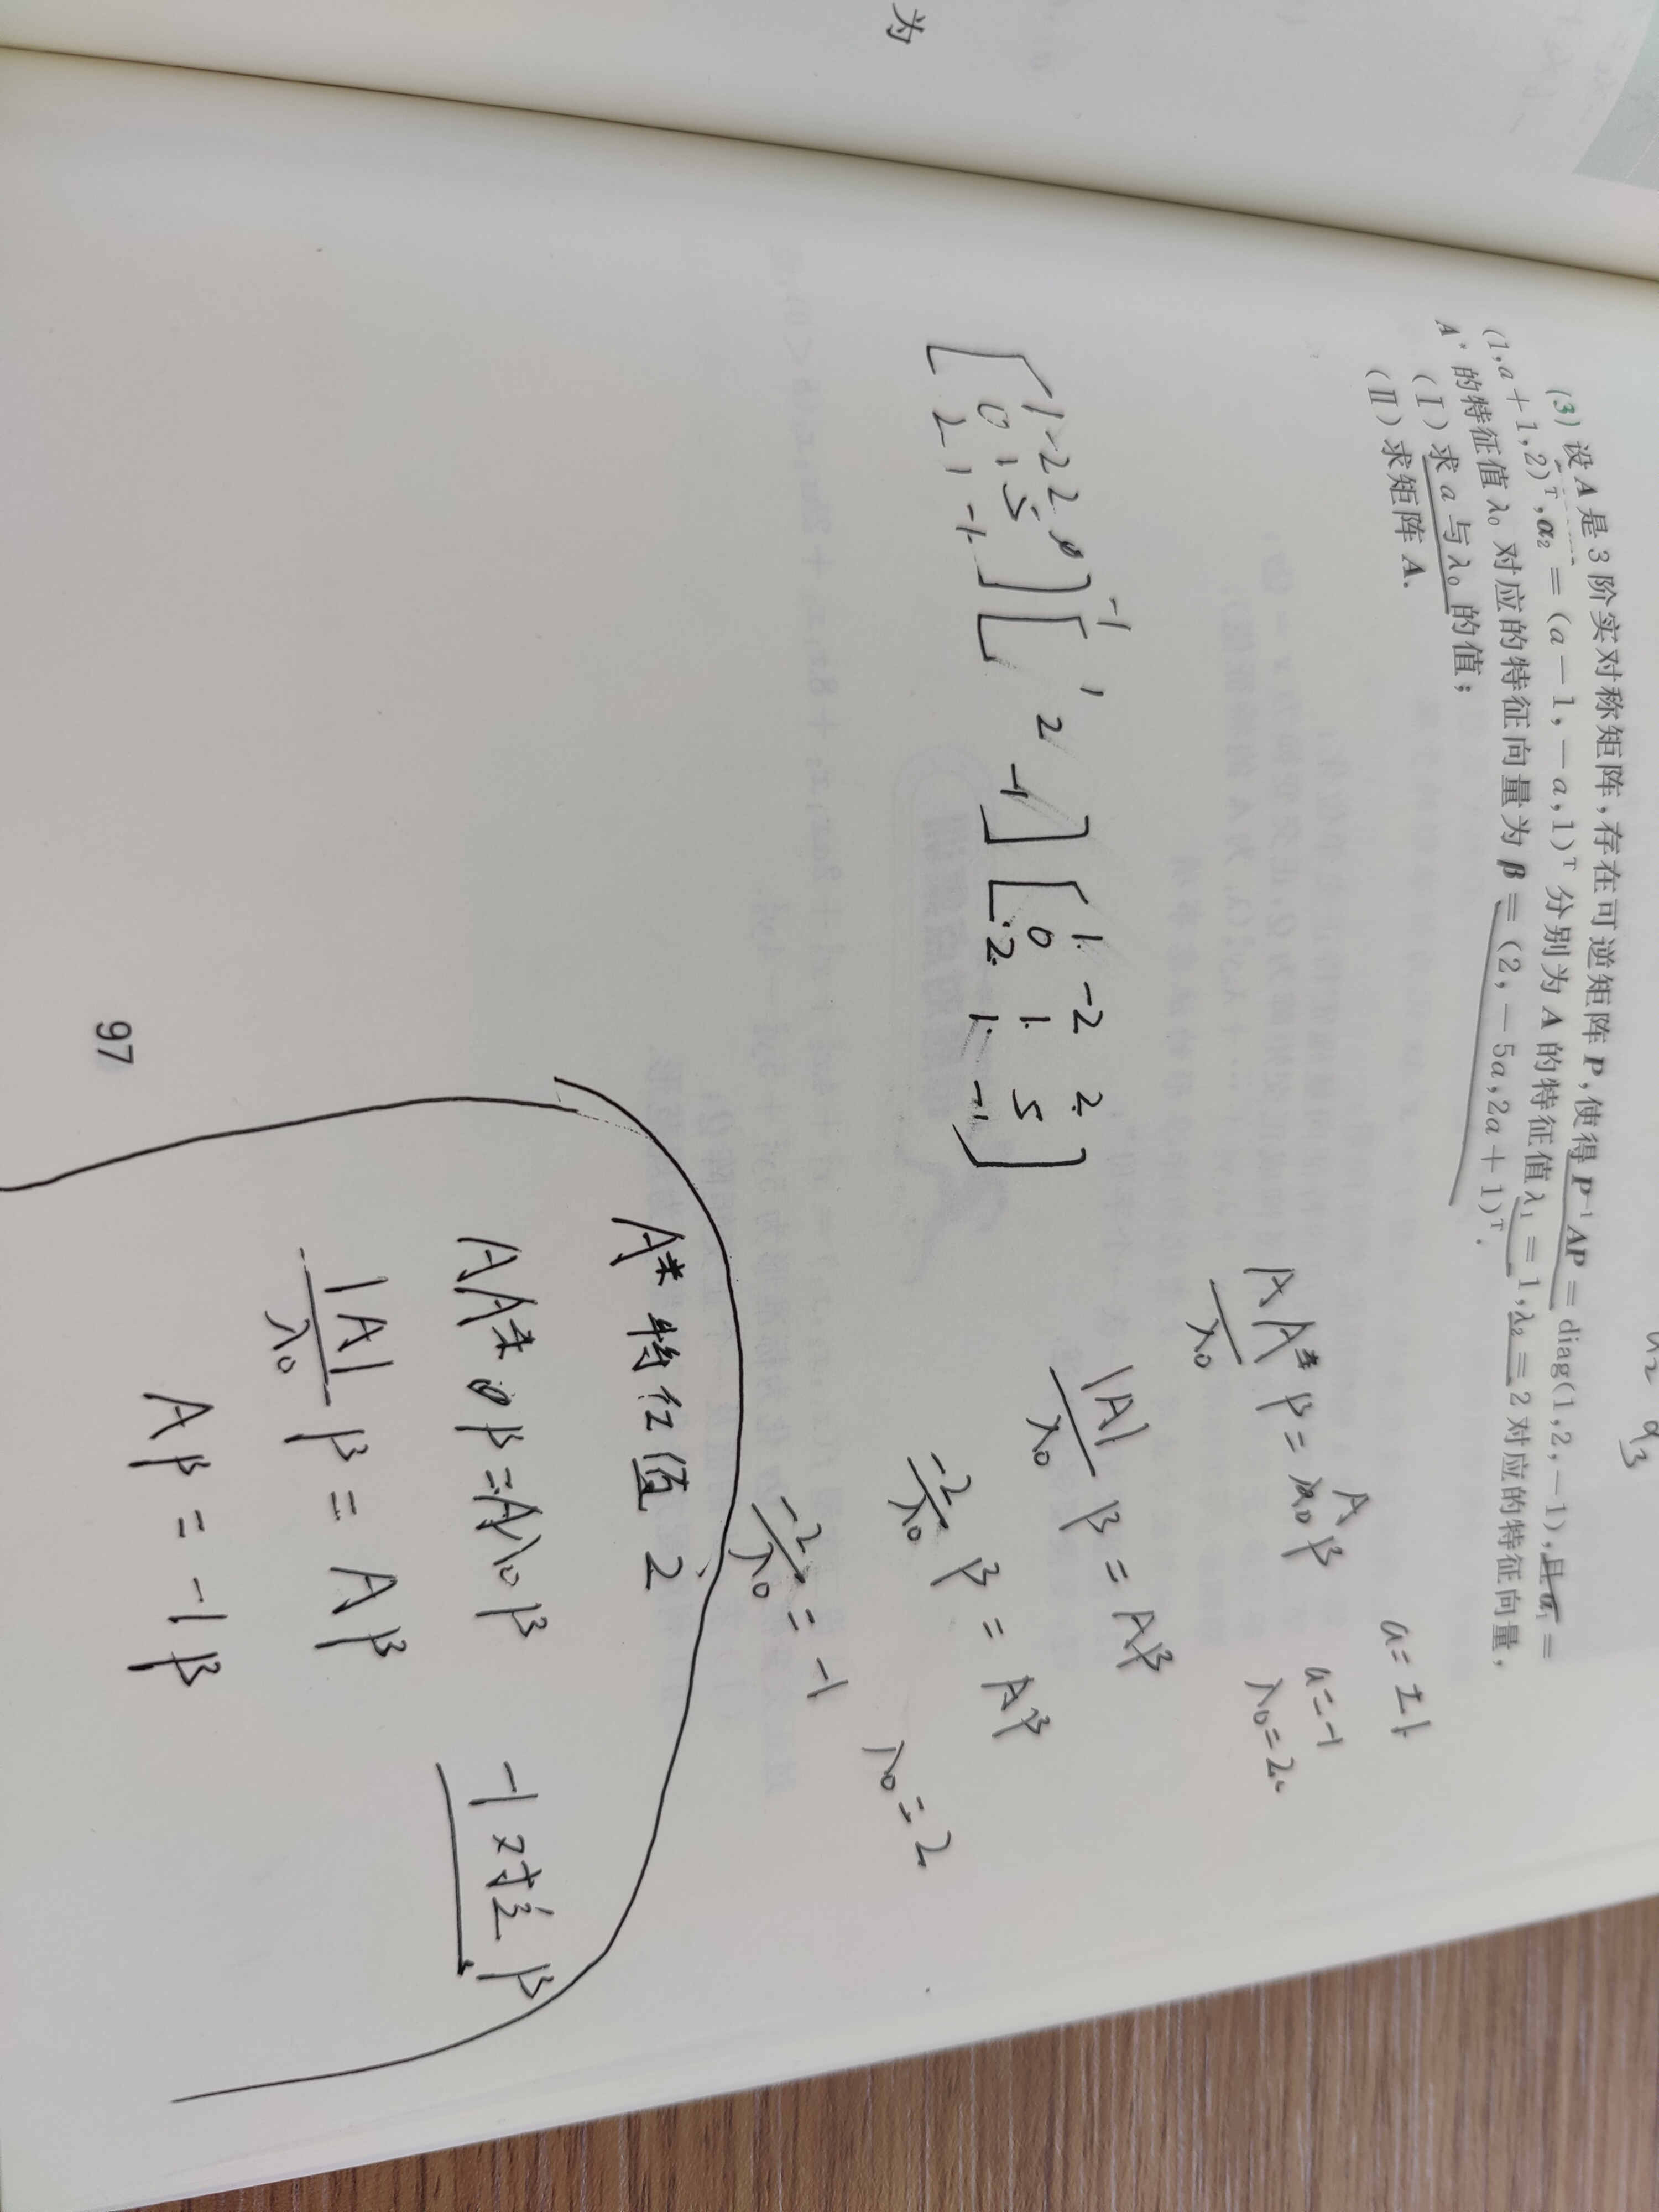 (3) 设 A 是 3 阶实对称矩阵,存在可逆矩阵 P,使得 P⁻¹AP = diag(1,2,−1),且 α₁ =
(1,a+1,2)ᵀ,α₂ = (a−1,−a,1)ᵀ 分别为 A 的特征值 λ₁ = 1,λ₂ = 2 对应的特征向量,
A* 的特征值 λ₀ 对应的特征向量为 β = (2,−5a,2a+1)ᵀ.
(Ⅰ) 求 a 与 λ₀ 的值;
(Ⅱ) 求矩阵 A.
a = ±1
a = −1
λ₀ = 2.
A
AA*β = λ₀β
λ₀
|A|/λ₀ β = Aβ
−2/λ₀ β = Aβ
−2/λ₀ = −1
λ₀ = 2
[1 −2 2
0 1 5
2 1 −1]
−1
[1
2
−1]
[1 −2 2
0 1 5
2 1 −1]
A* 特征值 2
AA*β = Aλ₀β
|A|/λ₀ β = Aβ
Aβ = −1β
−1 对应 β
97
为
α₃